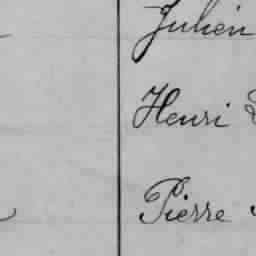 Julien
Henri
Pierre